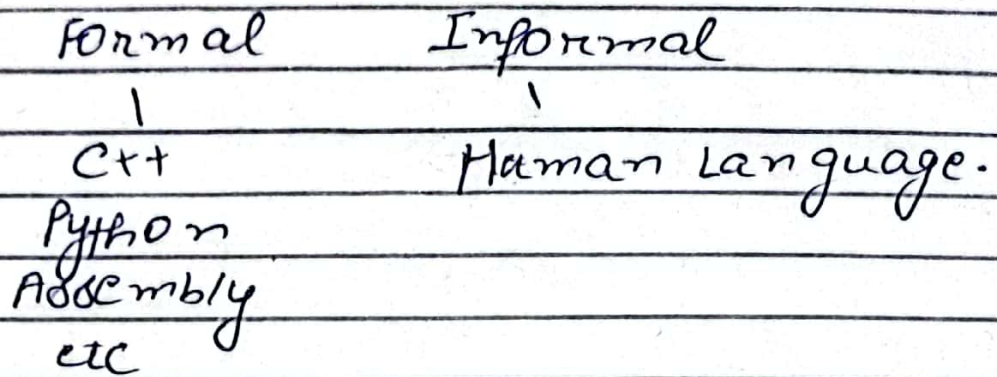 Formal Informal
C++ Human Language.
Python
Assembly
etc